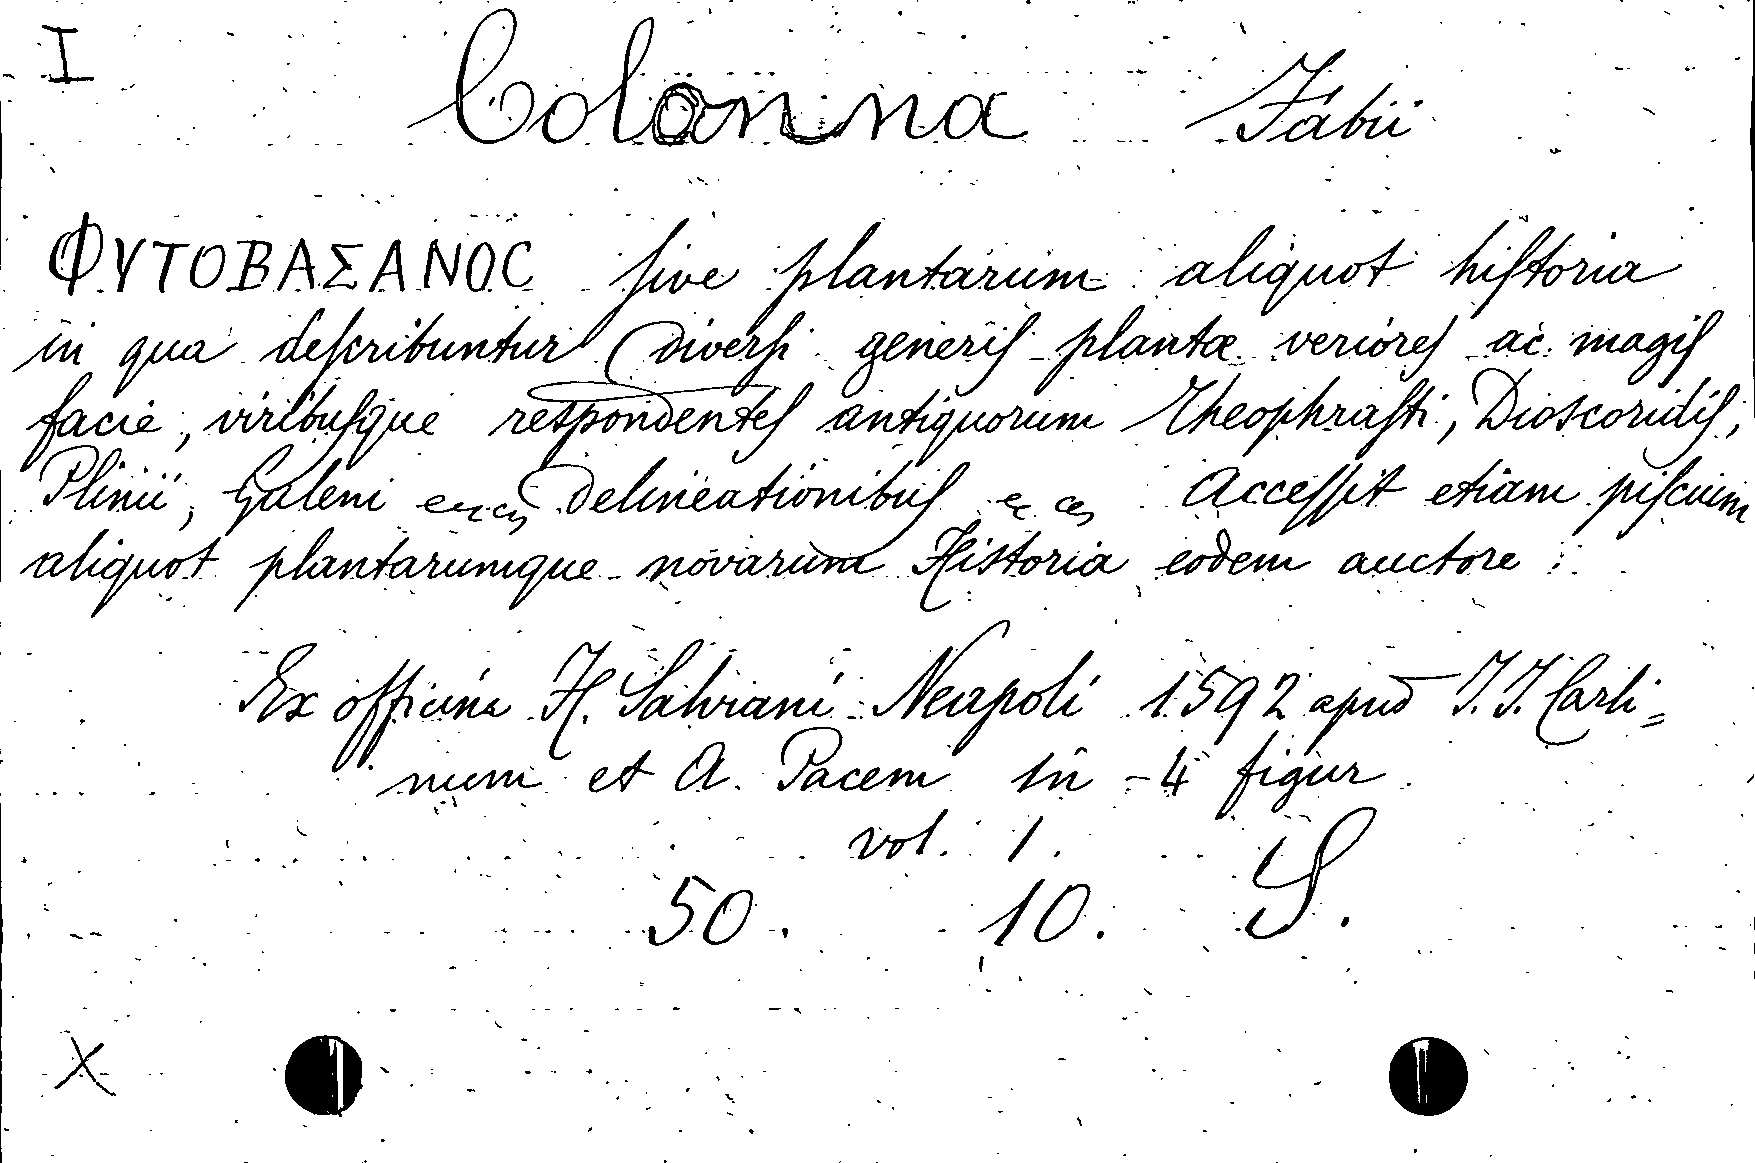 I Colonna Fabii
ΦΥΤΟΒΑΣΑΝΟC ſive plantarum aliquot hiſtoria
in qua deſcribuntur diverſi generiſ plantæ verioreſ ac magiſ
facie, viribuſque respondenteſ antiquorum Theophraſti, Dioscoridiſ,
Plinii, Galeni delineationibuſ Acceſſit etiam piſcium
aliquot plantarumque novarum Historia eodem auctore:
Ex officina H. Salviani Neapoli 1592 apud J. J. Carli=
num et A. Pacem in-4 figur.
vol. 1.
50. 10. S.
X